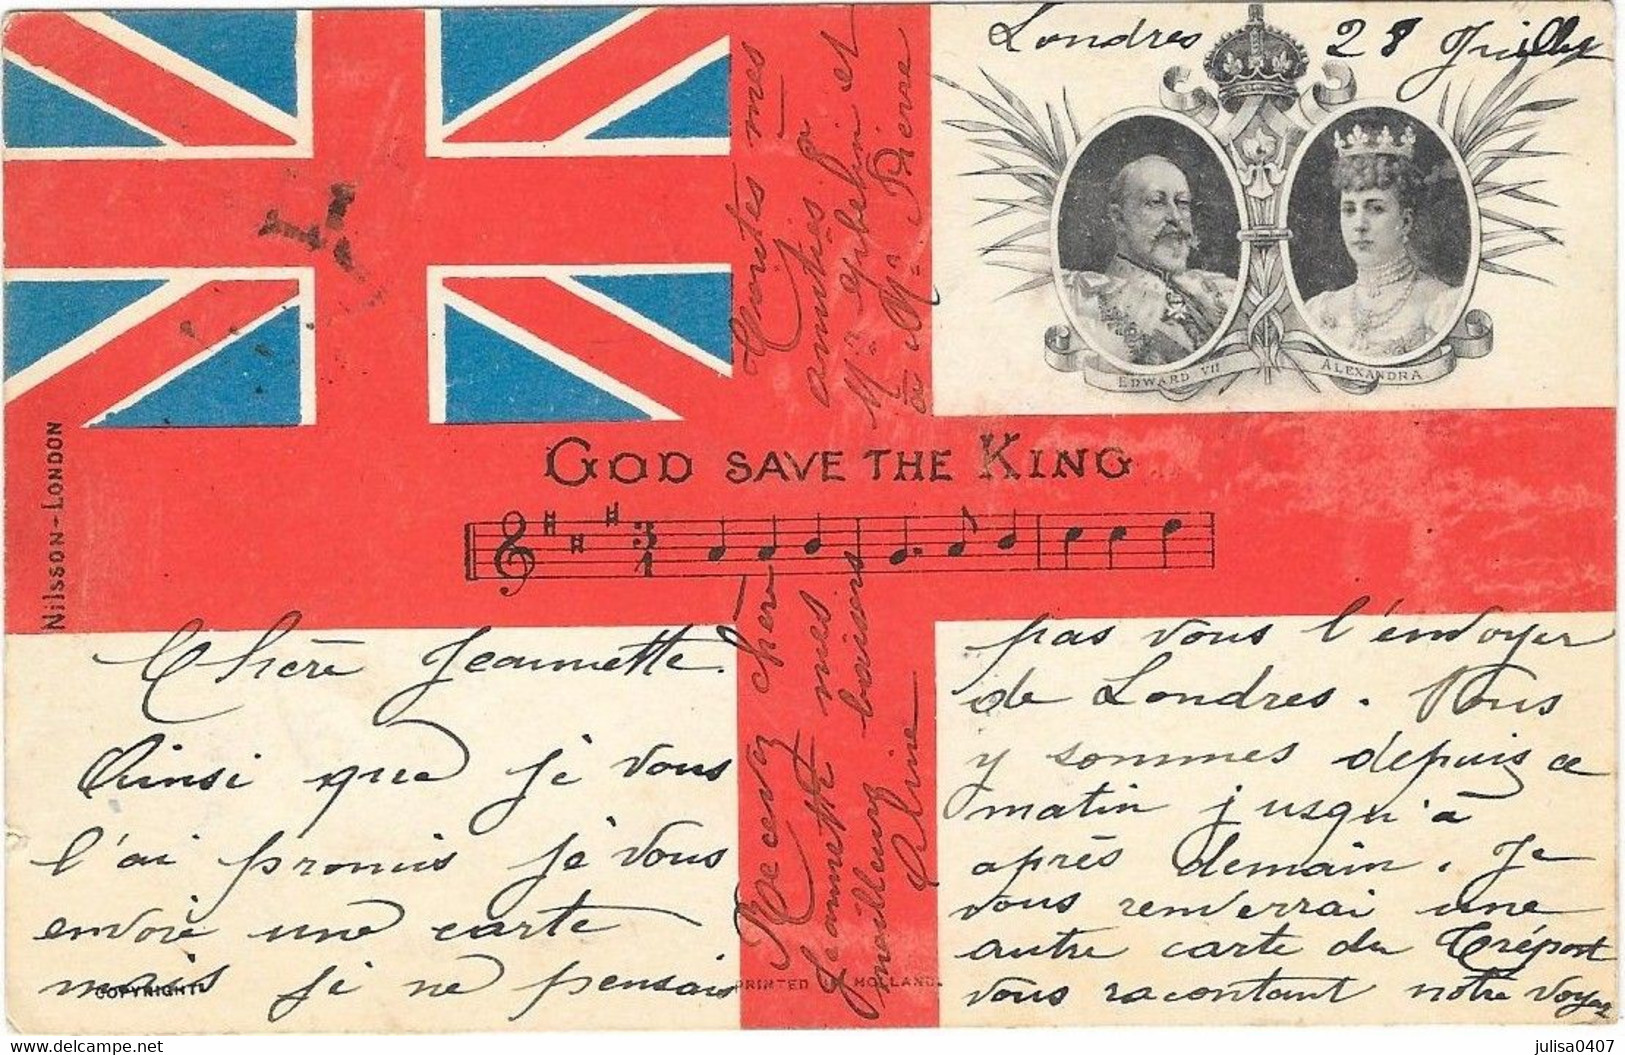 Londres 28 Juillet
EDWARD VII
ALEXANDRA
GOD SAVE THE KING
3
4
NilSSON-LONDON
Chère Jeannette.
Ainsi que je vous
l'ai promis je vous
envoie une carte
mais je ne pensais
pas vous l'envoyer
de Londres. Nous
y sommes depuis ce
matin jusqu'à
après demain. Je
vous renverrai une
autre carte du Tréport
vous racontant notre voyage
Recevez chère
Jeannette mes
meilleurs baisers
Aline
Toutes mes
amitiés à
Mr et
à Mr Pierre
COPYRIGHT
PRINTED IN HOLLAND.
www.delcampe.net
julisa0407